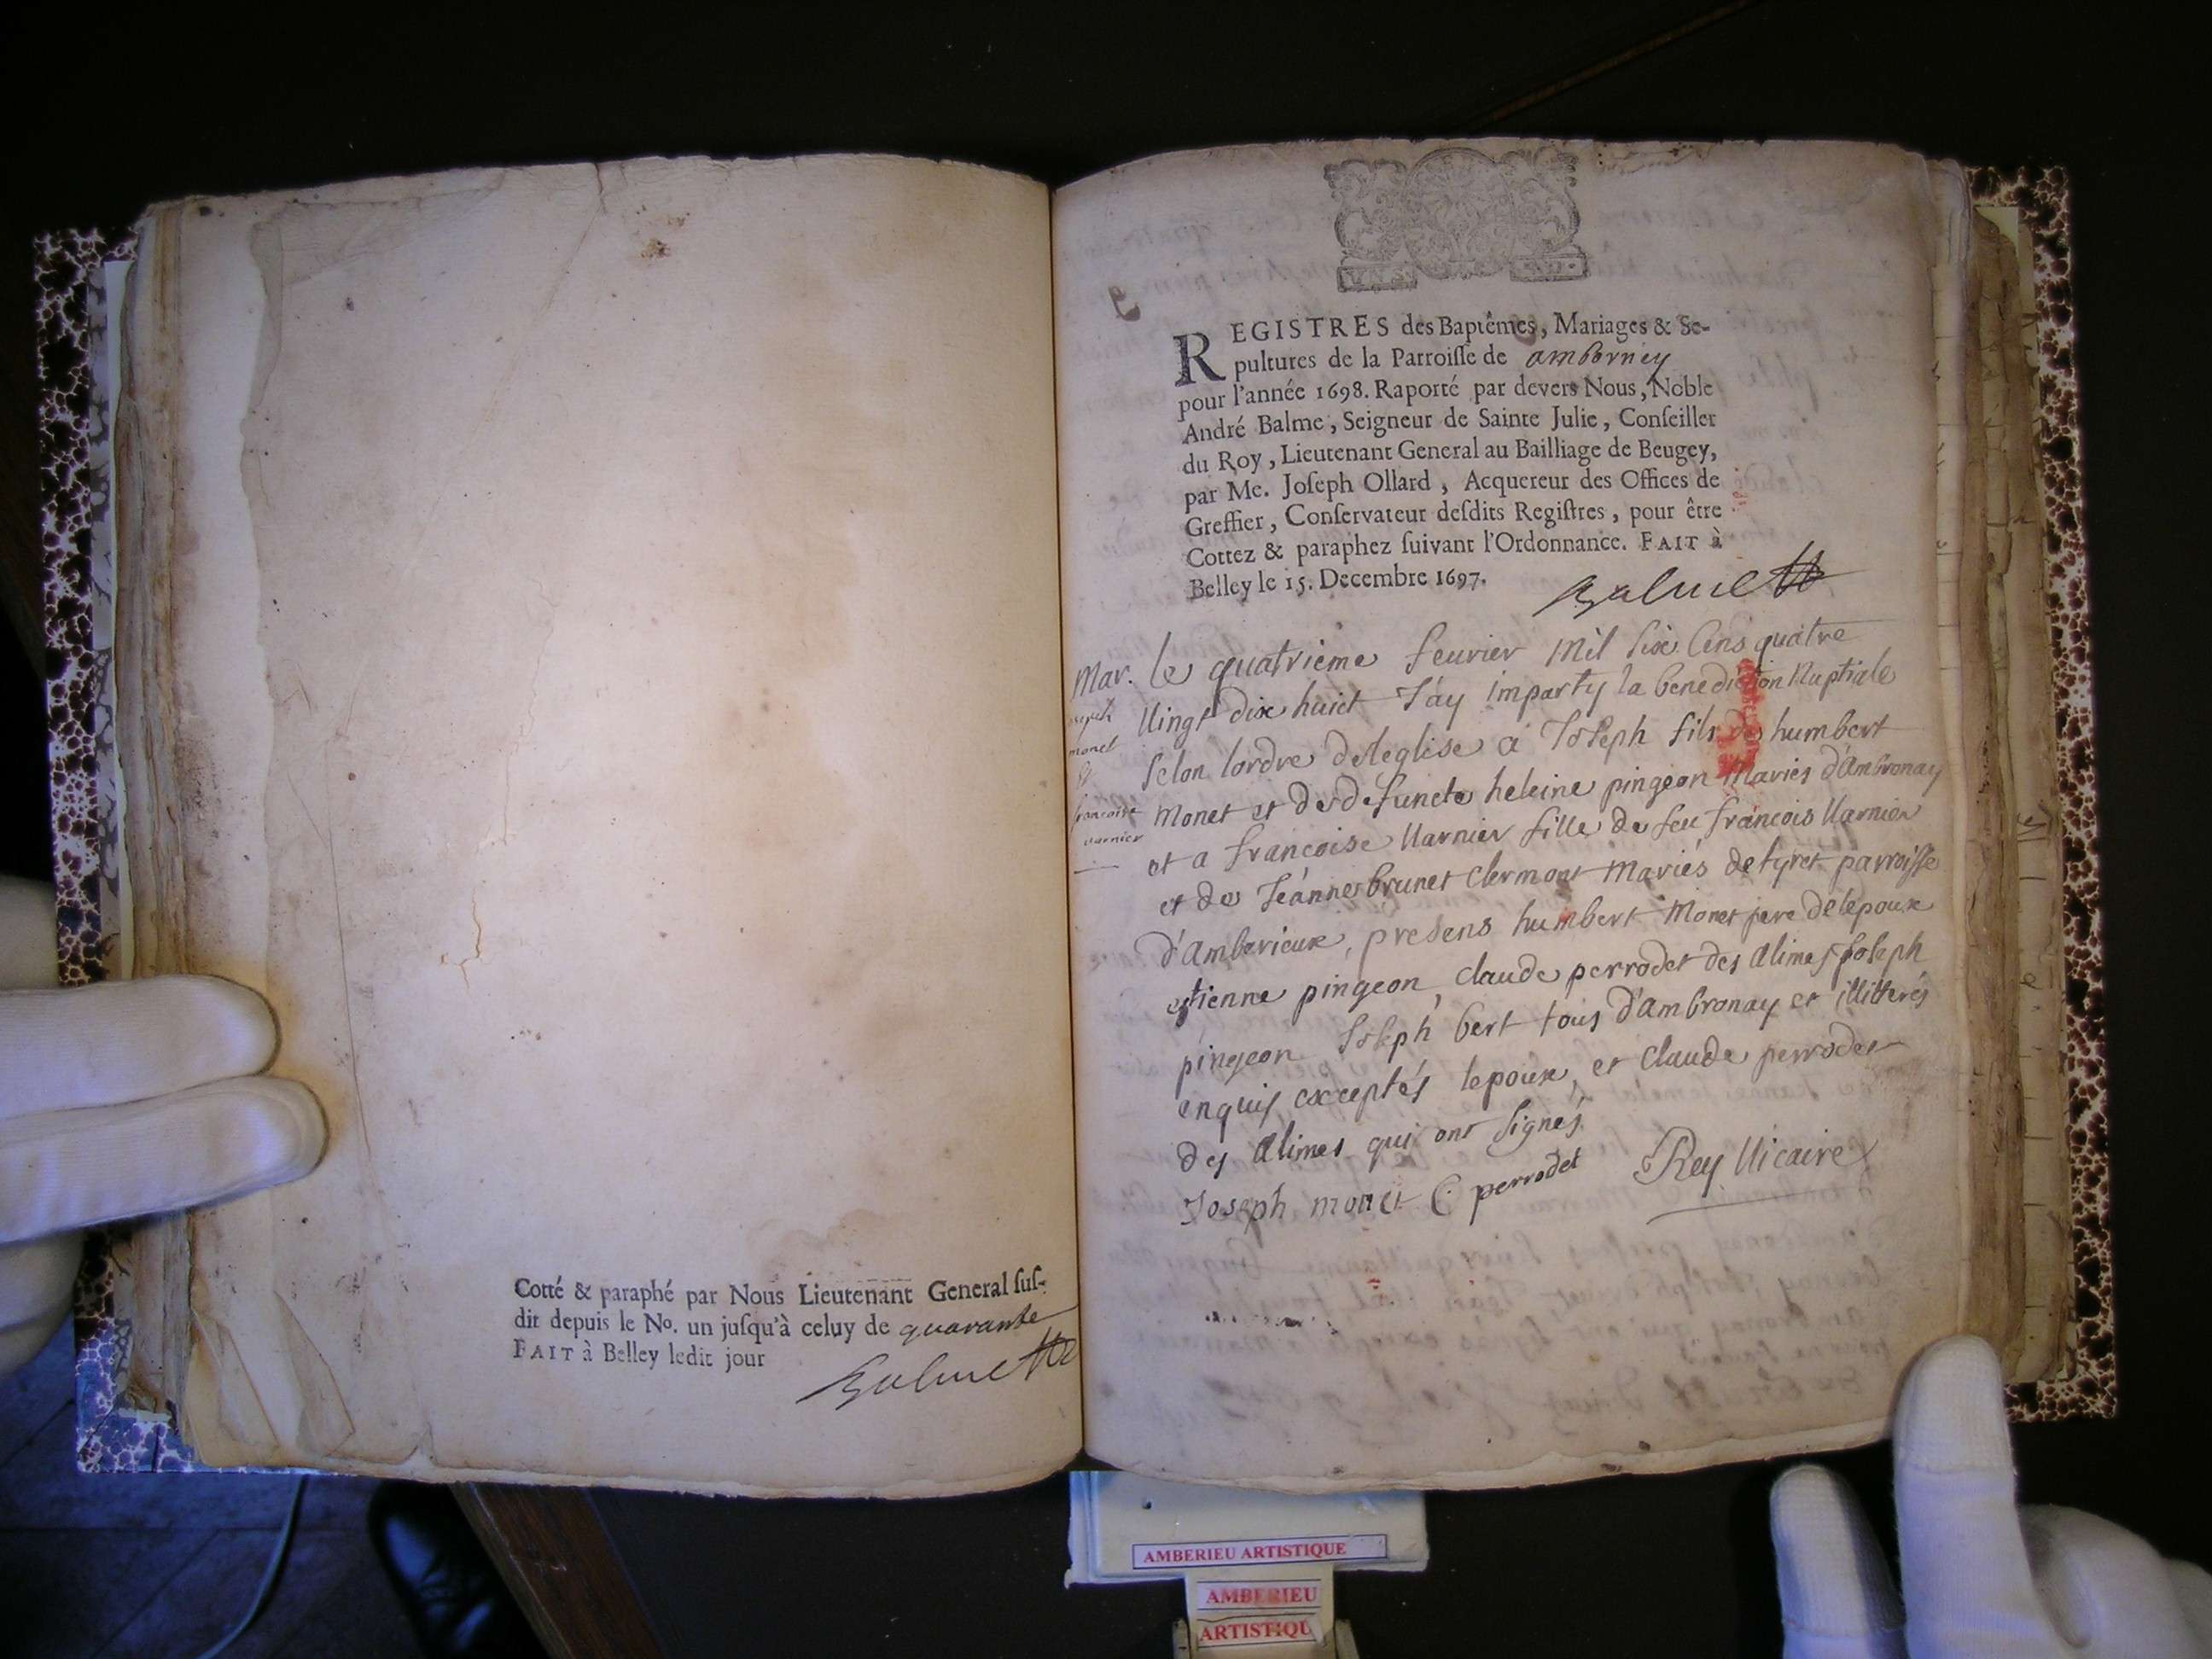 Cotté & paraphé par Nous Lieutenant General suf-
dit depuis le No. un jusqu'à celuy de quarante
FAIT à Belley ledit jour
Balme
REGISTRES des Baptêmes, Mariages & Se-
pultures de la Parroisse de amborney
pour l'année 1698. Raporté par devers Nous, Noble
André Balme, Seigneur de Sainte Julie, Conseiller
du Roy, Lieutenant General au Bailliage de Beugey,
par Me. Joseph Ollard, Acquereur des Offices de
Greffier, Conservateur desdits Registres, pour être
Cottez & paraphez suivant l'Ordonnance. FAIT à
Belley le 15. Decembre 1697.
Balme
Mar.
joseph
monet
&
francoise
varnier
le quatrieme feurier Mil Six Cens quatre
Vingt dix huict J'ay imparty la benediction Nuptiale
selon lordre deleglise a Joseph fils de humbert
Monet et de defuncte heleine pingeon Mariés d'Ambronay
et a francoise Varnier fille de feu francois Varnier
et de Jeanne brunet Clermont Mariés de tyret parroisse
d'Amberieux, presens humbert Monet pere delepoux
estienne pingeon, Claude perrodet des Alimes, Joseph
pingeon Joseph bert tous d'Ambronay et illitterés
enquis exceptés lepoux, et Claude perrodet
des Alimes qui ont signés
Joseph monet C. perrodet Rey Vicaire
AMBERIEU ARTISTIQUE
AMBERIEU
ARTISTIQU